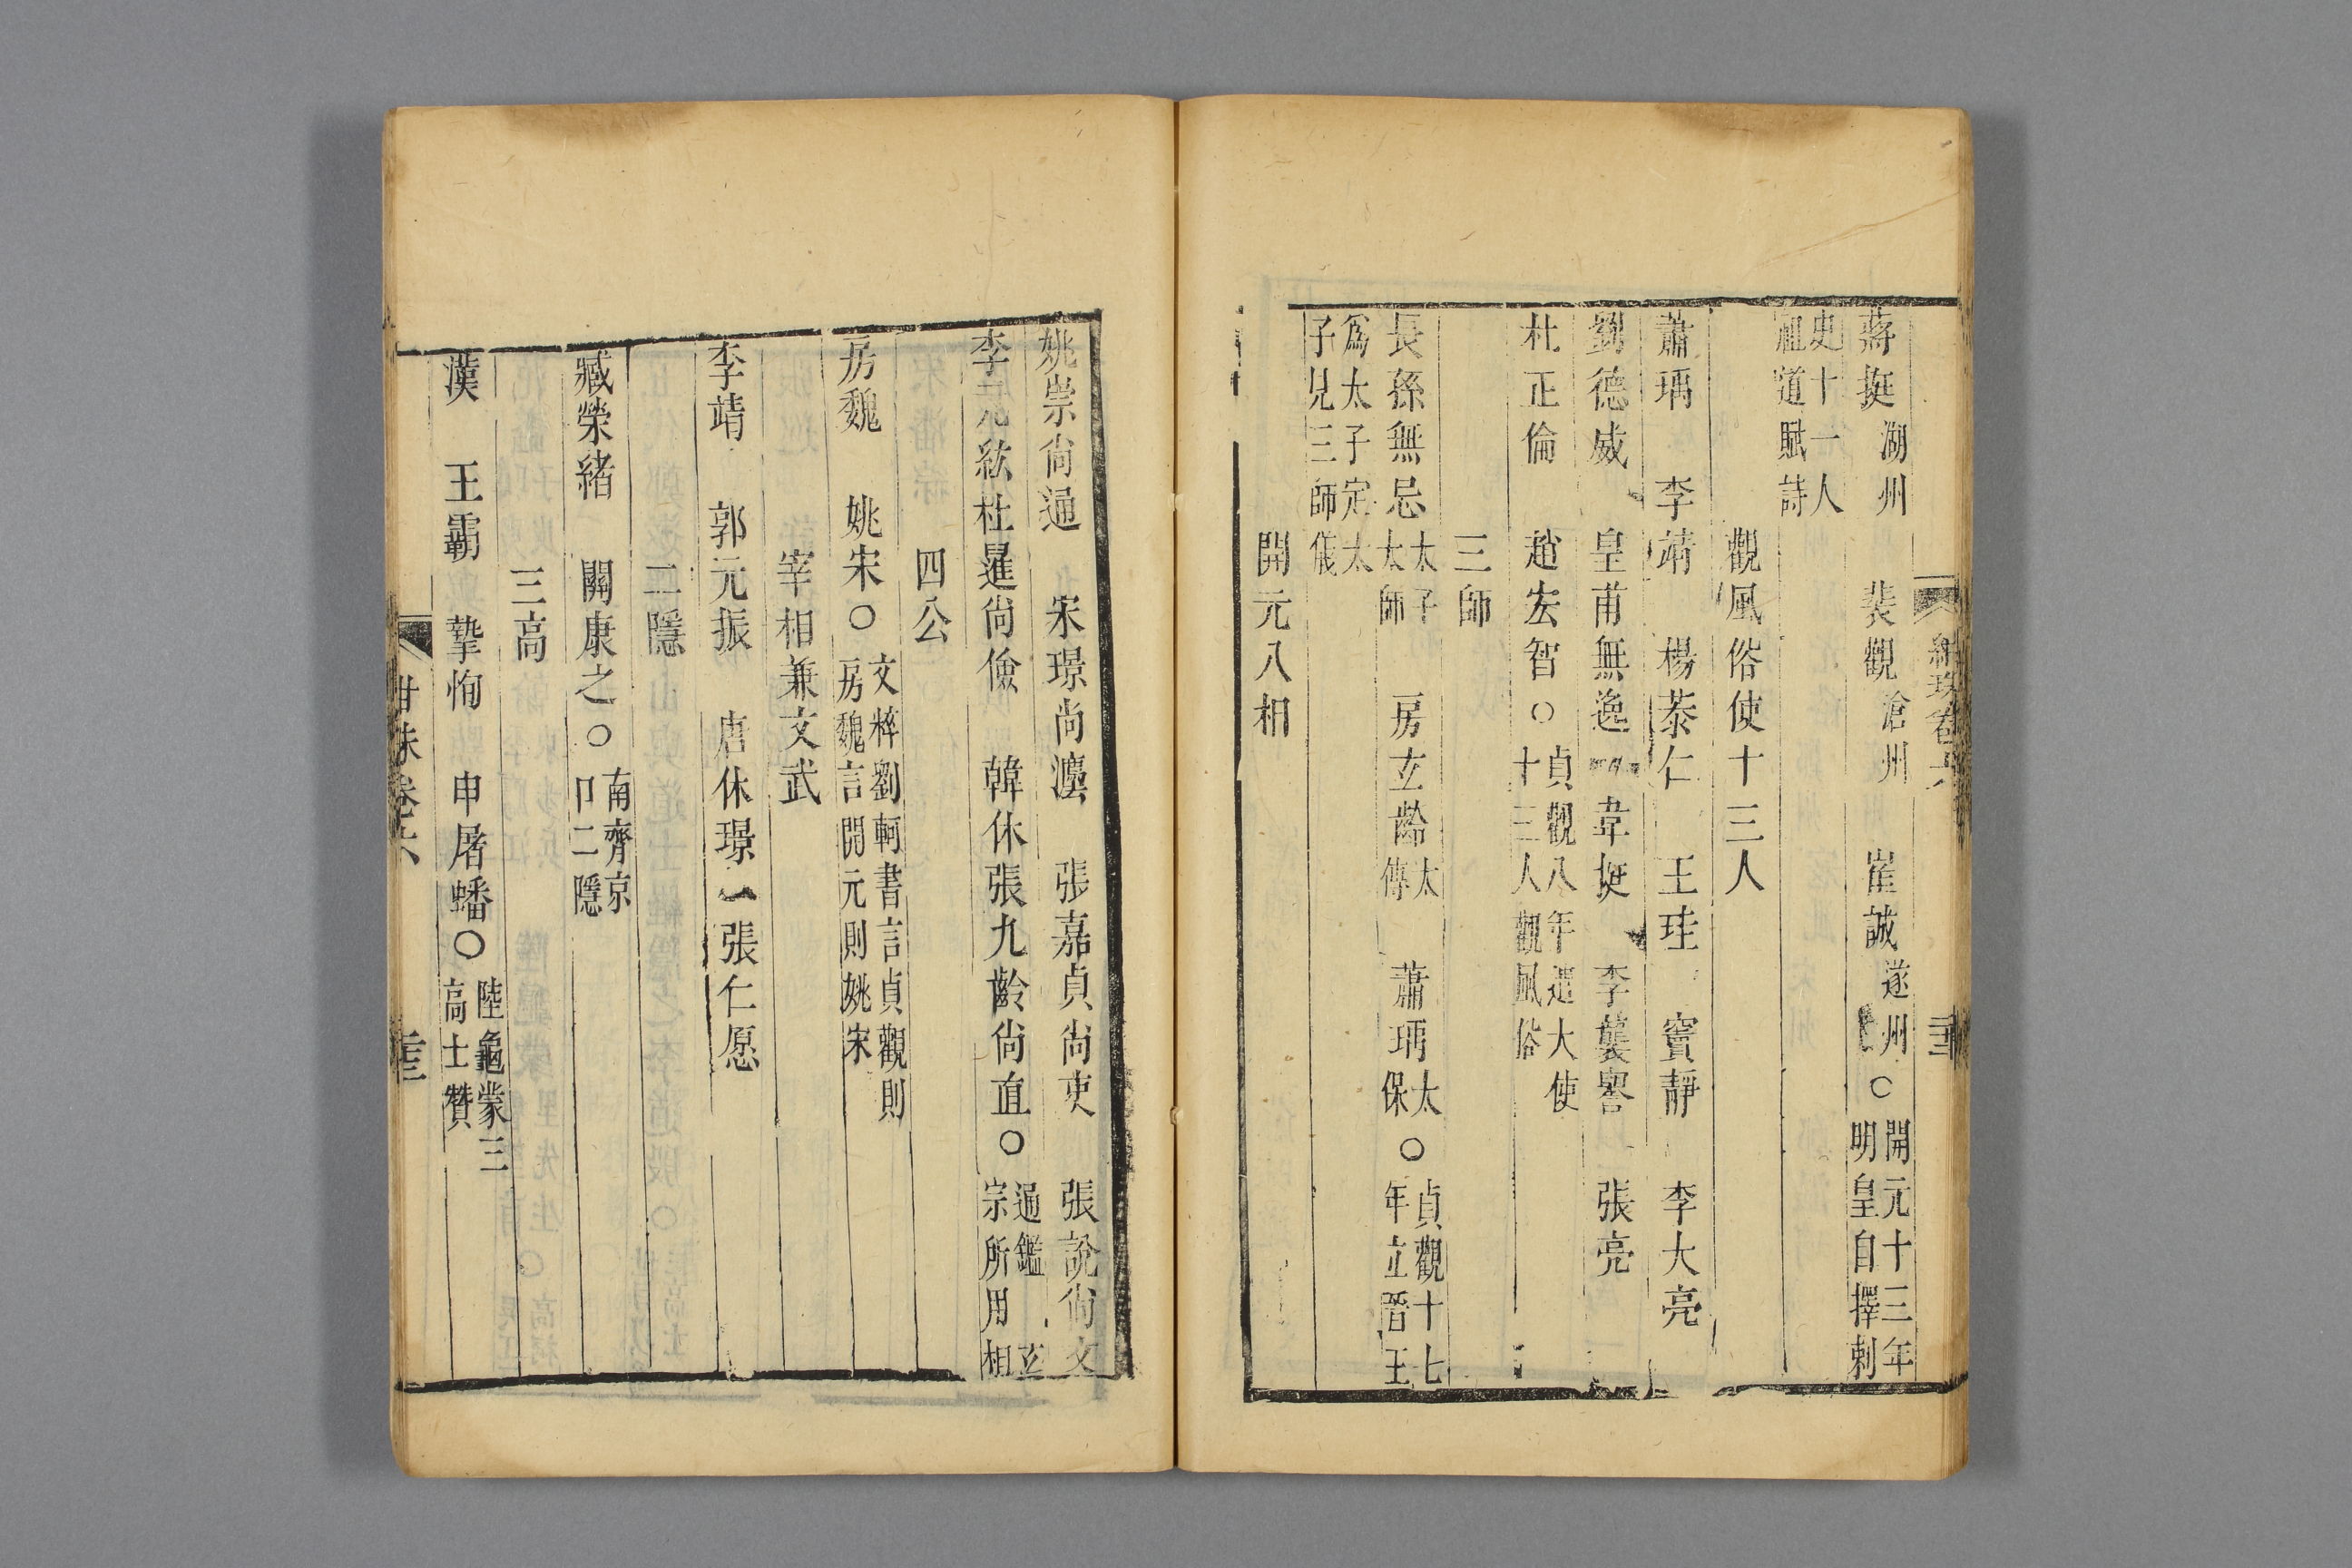 蔣挺湖州　裴觀滄州　崔誠遂州○開元十三年明皇自擇刺
史十一人祖道賦詩
觀風俗使十三人
蕭瑀　李靖　楊恭仁　王珪　竇靜　李大亮
劉德威　皇甫無逸　韋挺　李襲譽　張亮
杜正倫　趙宏智○貞觀八年遣大使十三人觀風俗
三師
長孫無忌太子太師　房玄齡太傅　蕭瑀太保○貞觀十七年立晉王
爲太子定太子見三師儀
開元八相
姚崇尚通　宋璟尚灋　張嘉貞尚吏　張說尚文
李元紘杜暹尚儉　韓休張九齡尚直○通鑑玄宗所用相
四公
房魏　姚宋○文粹劉軻書言貞觀則房魏言開元則姚宋
宰相兼文武
李靖　郭元振　唐休璟　張仁愿
二隱
臧榮緒　關康之○南齊京口二隱
三高
漢　王霸　摯恂　申屠蟠○陸龜蒙三高士贊